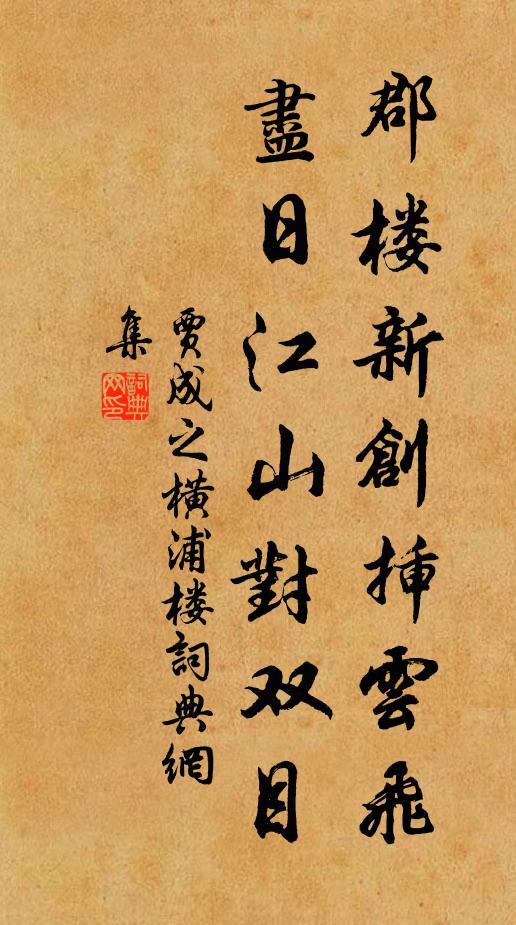 郡楼新創揷雲飛
盡日江山對双目
賈成之橫浦楼詞典網
集
詞典
网印